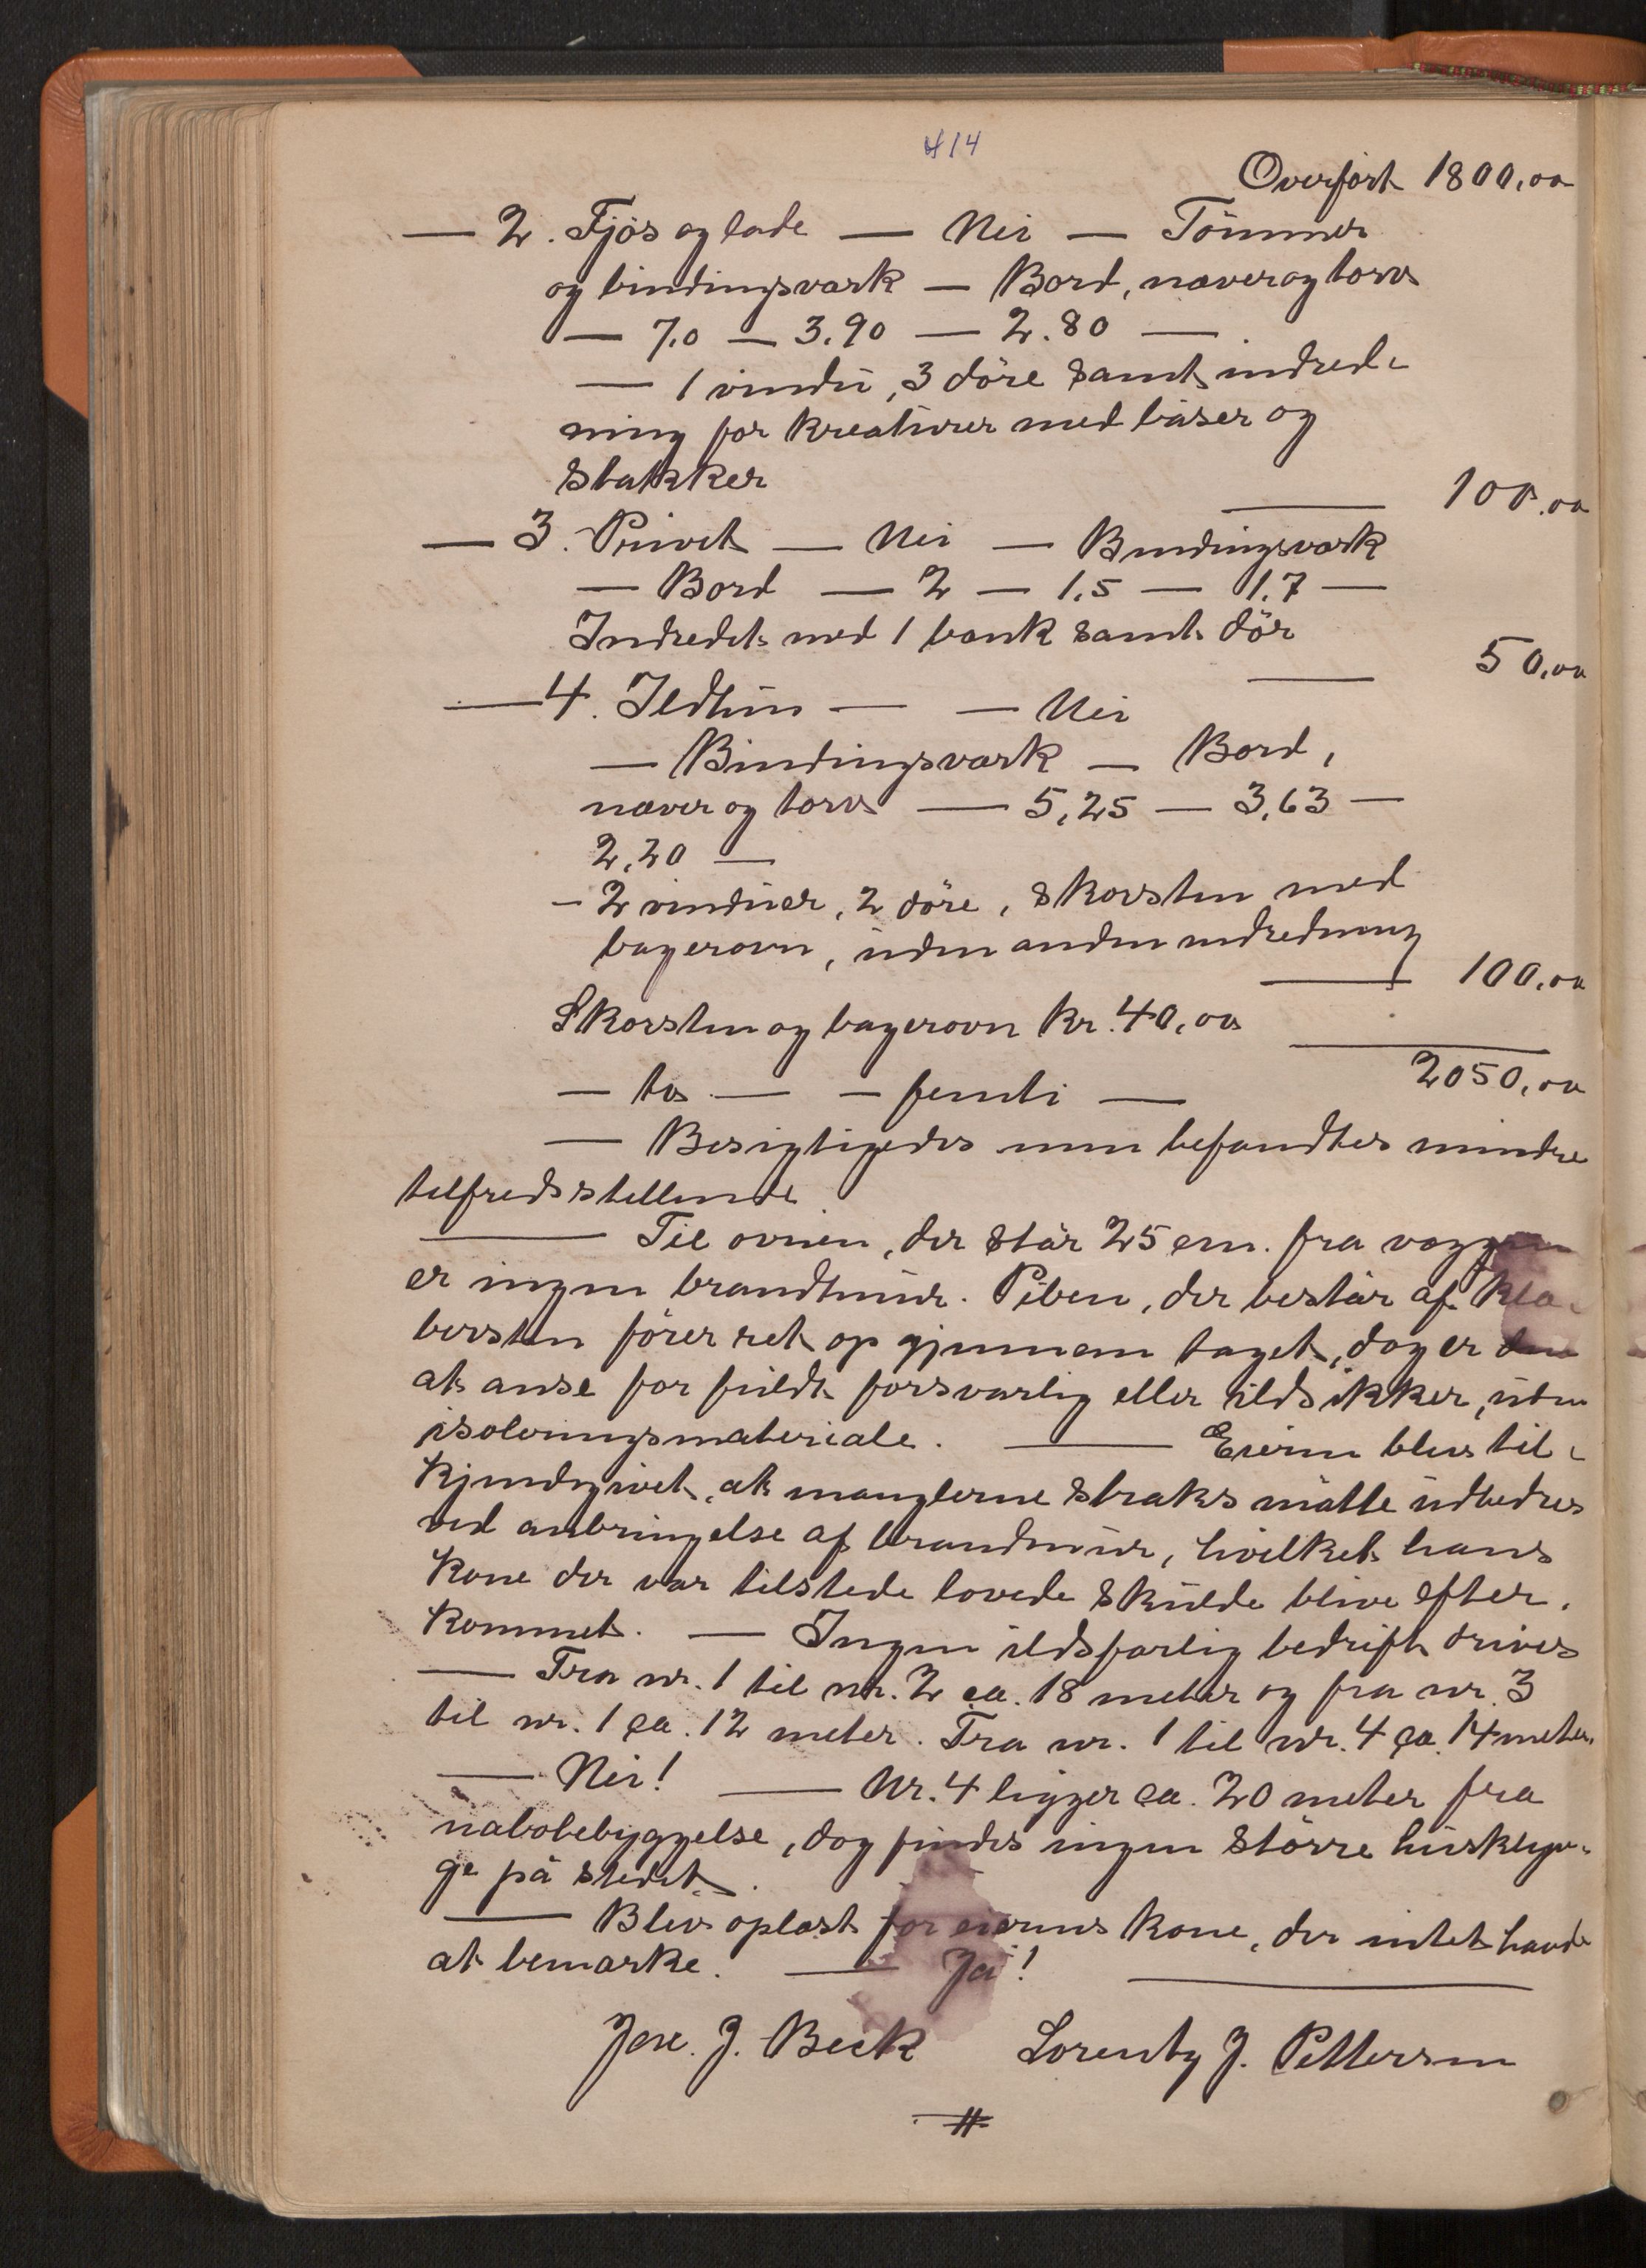 414
Overført 1800,00
— 2. Fjös og lade — Nei — Tömmer
og bindingsværk — Bord, næver og torv
— 7.0 — 3.90 — 2.80 —
— 1 vindu, 3 döre samt indred-
ning for kreaturer med båser og
stakker
——— 100,00
— 3. Privet — Nei — Bindingsværk
— Bord — 2 — 1.5 — 1.7 —
Indredet med 1 bænk samt dör
——— 50,00
— 4. Ildhus — — Nei
— Bindingsværk — Bord,
næver og torv — 5,25 — 3,63 —
2,20 —
- 2 vinduer, 2 döre, skorsten med
bagerovn, uden anden indredning
——— 100,00
Skorsten og bagerovn kr. 40,00
2050,00
— to — — femti —
— Besigtigedes men befandtes mindre
tilfredsstillende
——— Til ovnen, der står 25 cm. fra væggen
er ingen brandmur. Piben, der består af kle-
bersten förer ret op gjennem taget, dog er den
at anse for fuldt forsvarlig eller ildsikker, uten
isoleringsmateriale. ——— Eieren blev til-
kjendegivet, at manglerne straks måtte udbedres
ved anbringelse af brandmur, hvilket hans
kone der var tilstede lovede skulde blive efter-
kommet. — Ingen ildsfarlig bedrift drives
—— Fra nr. 1 til nr. 2 ca. 18 meter og fra nr. 3
til nr. 1 ca. 12 meter. Fra nr. 1 til nr. 4 ca. 14 meter.
—— Nei! ——— Nr. 4 ligger ca. 20 meter fra
nabobebyggelse, dog findes ingen större husklyn-
ge på stedet.
——— Blev oplæst for eierens kone, der intet havde
at bemærke. ——— Ja! ———
Joh. J. Beck Lorentz J. Pettersen
#